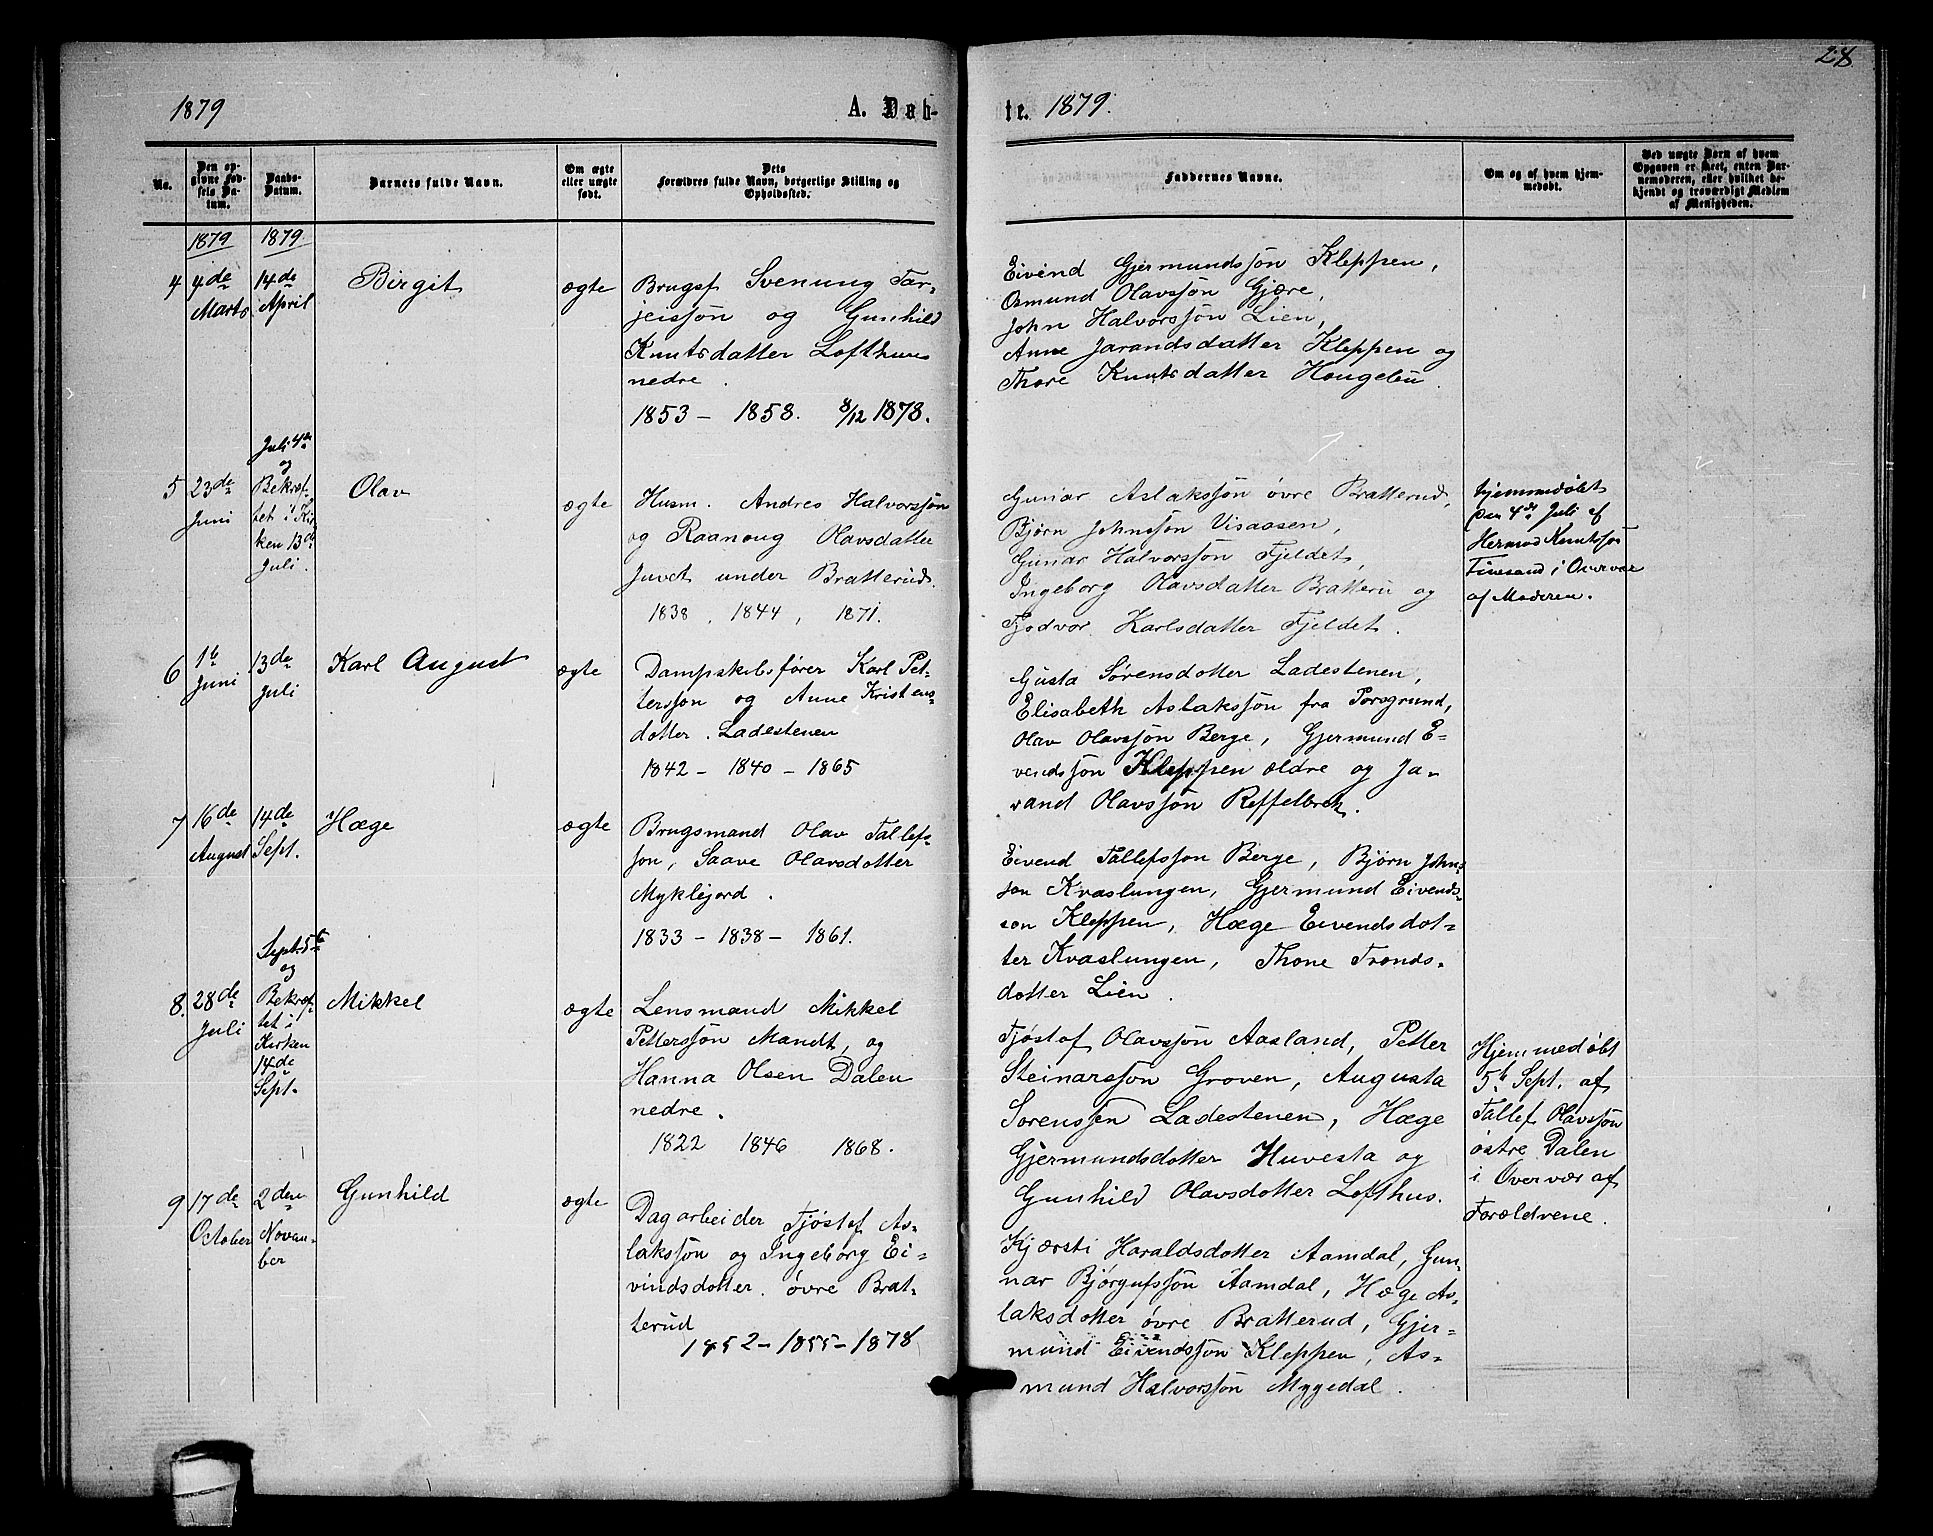 28
1879
A. Døb-
te. 1879.
No.
Den op-
givne Fød-
sels Da-
tum.
Daabs-
Datum.
Barnets fulde Navn.
Om ægte
eller uægte
født.
Dets
Forældres fulde Navn, borgerlige Stilling og
Opholdssted.
Faddernes Navne.
Om og af hvem hjem-
medøbt.
Ved uægte Børn af hvem
Opgaven er skeet, enten Bar-
nemoderen, eller hvilket be-
kjendt og troværdigt Medlem
af Menigheden.
1879
1879
4
4de
Marts
14de
April
Birgit
ægte
Brugsf Svenung Tar-
jeissøn og Gunhild
Knutsdatter Lofthuus
nedre.
1853 - 1858. 8/12 1878.
Eivind Gjermundssøn Kleppen,
Osmund Olavssøn Gjøre,
John Halvorssøn Lien,
Anne Jarandsdatter Kleppen og
Thore Knutsdatter Hougebu.
5
23de
Juni
Juli 4de
og
Bekræf-
tet i Kir-
ken 13de
Juli.
Olav
ægte
Husm. Andres Halvorssøn
og Raanoug Olavsdatter
Juvet under Bratterud.
1838, 1844, 1871.
Gunar Aslakssøn øvre Bratterud,
Bjørn Johnssøn Visaasen,
Gunar Halvorssøn Fjeldet,
Ingeborg Olavsdatter Bratteru og
Tjodvor Karlsdatter Fjeldet.
hjemmedøbt
den 4de Juli af
Hermod Knutssøn
i Overvær
af Moderen.
6
1ste
Juni
13de
Juli
Karl August
ægte
Dampskibsfører Karl Pet-
terssøn og Anne Kristens-
dotter. Ladestenen
1842 - 1840 - 1865
Gusta Sørensdotter Ladestenen,
Elisabeth Aslakssøn fra Porsgrund,
Olav Olavssøn Berge, Gjermund E-
vendssøn Kleppen ældre og Ja-
rand Olavssøn Reffelbrek.
7
16de
August
14de
Sept.
Hæge
ægte
Brugsmand Olav Tallefs-
søn, Saave Olavsdotter
Myklejord.
1833 - 1838 - 1861.
Eivend Tallefssøn Berge, Bjørn John-
søn Kvaslungen, Gjermund Eivends-
søn Kleppen, Hæge Eevendsdot-
ter Kvaslungen, Thone Tronds-
dotter Lien.
8.
28de
Juli
Sept. 5te
og
Bekræf-
tet i
Kirken
14de
Sept.
Mikkel
ægte
Lensmand Mikkel
Petterssøn Mandt, og
Hanna Olsen Dalen
nedre.
1822 1846 1868.
Tjøstof Olavssøn Aasland, Petter
Steinarssøn Groven, Augusta
Sørenssen Ladestenen, Hæge
Gjermundsdotter Huvesta og
Gunhild Olavsdotter Lofthus.
Hjemmedøbt
5te Sept. af
Tallef Olavssøn
østre Dalen
i Overvær af
Forældrene.
9
17de
October
2den
Novem-
ber
Gunhild
ægte
Dagarbeider Tjøstef As-
lakssøn og Ingeborg Ei-
vindsdotter. øvre Brat-
terud
1852 - 1855 - 1878
Kjærsti Haraldsdotter Aamdal, Gun-
nar Bjørgufssøn Aamdal, Hæge As-
laksdotter øvre Bratterud, Gjer-
mund Eivendssøn Kleppen, As-
mund Halvorssøn Myggedal.